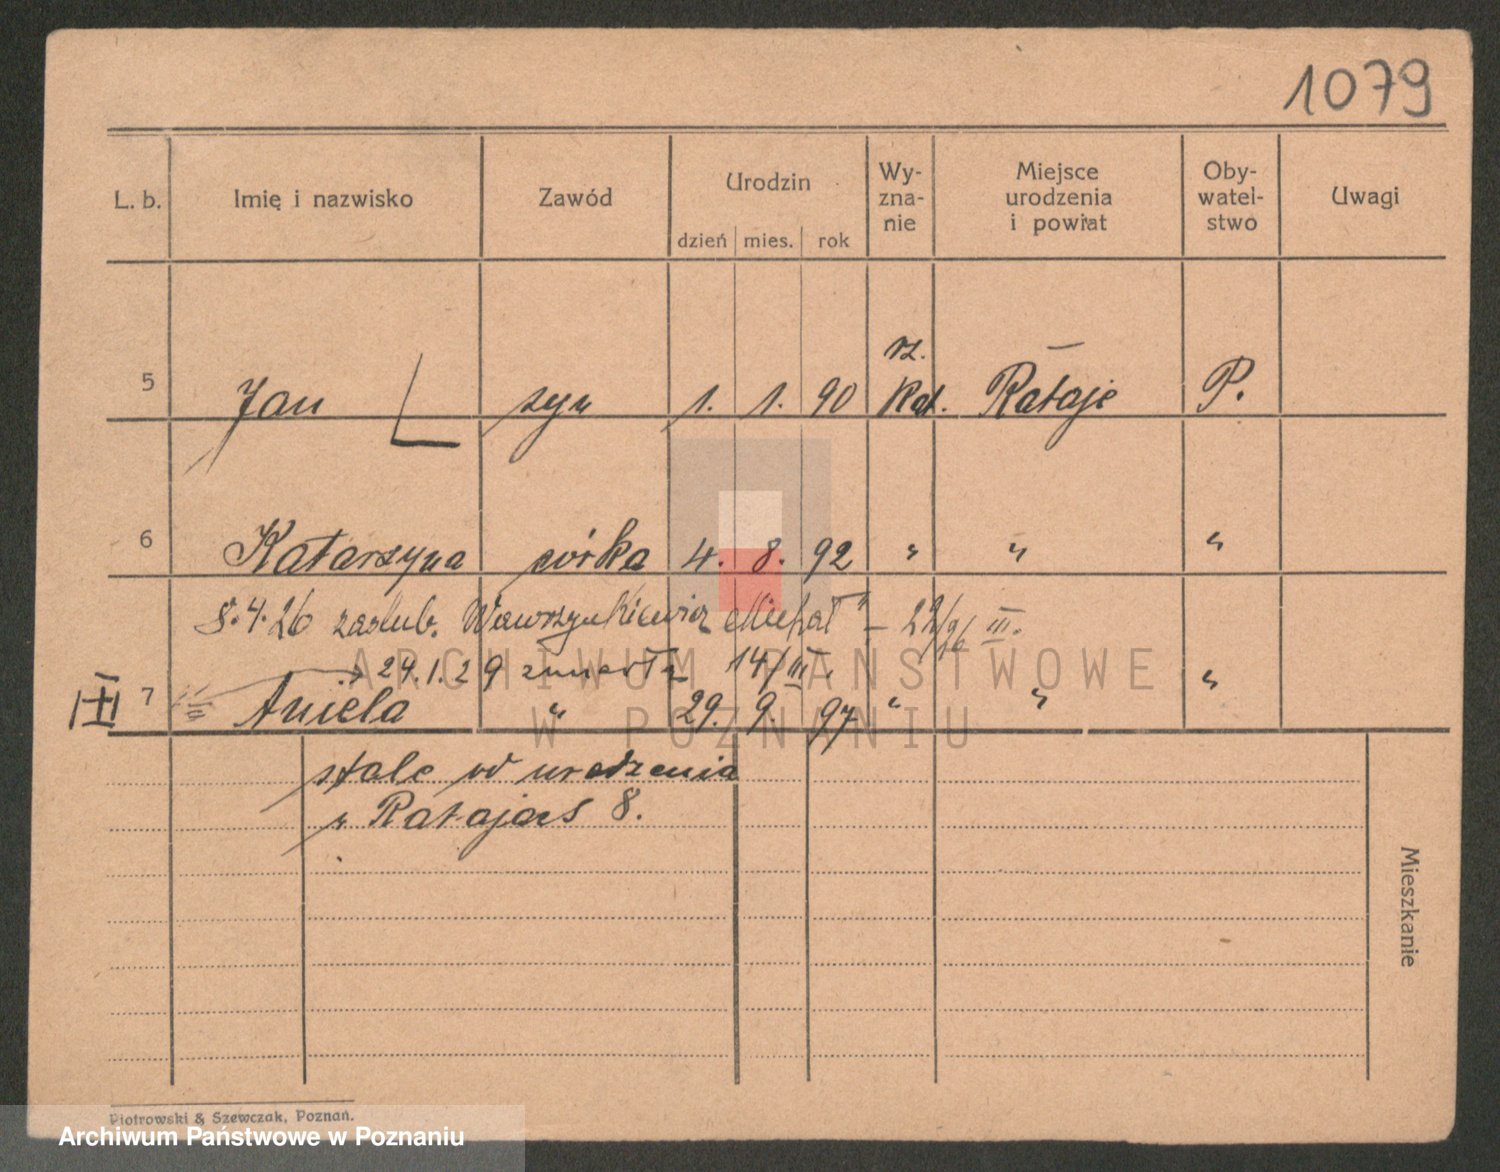 1079
L. b. Imię i nazwisko Zawód Urodzin dzień mies. rok Wy-zna-nie Miejsce urodzenia i powiat Oby-watel-stwo Uwagi
5 Jan syn 1. 1. 90 rz. Kat. Rataje P.
6 Katarzyna córka 4. 8. 92 " " "
8.4.26 zaślub. Wawrzynkiewicz Michał - 22/26 III.
24.1.29 zmarła 14/III.
III 7 Aniela " 29. 9. 97 " " "
stale od urodzenia
w Ratajach 8.
Mieszkanie
Piotrowski & Szewczak, Poznań.
ARCHIWUM PAŃSTWOWE
W POZNANIU
Archiwum Państwowe w Poznaniu